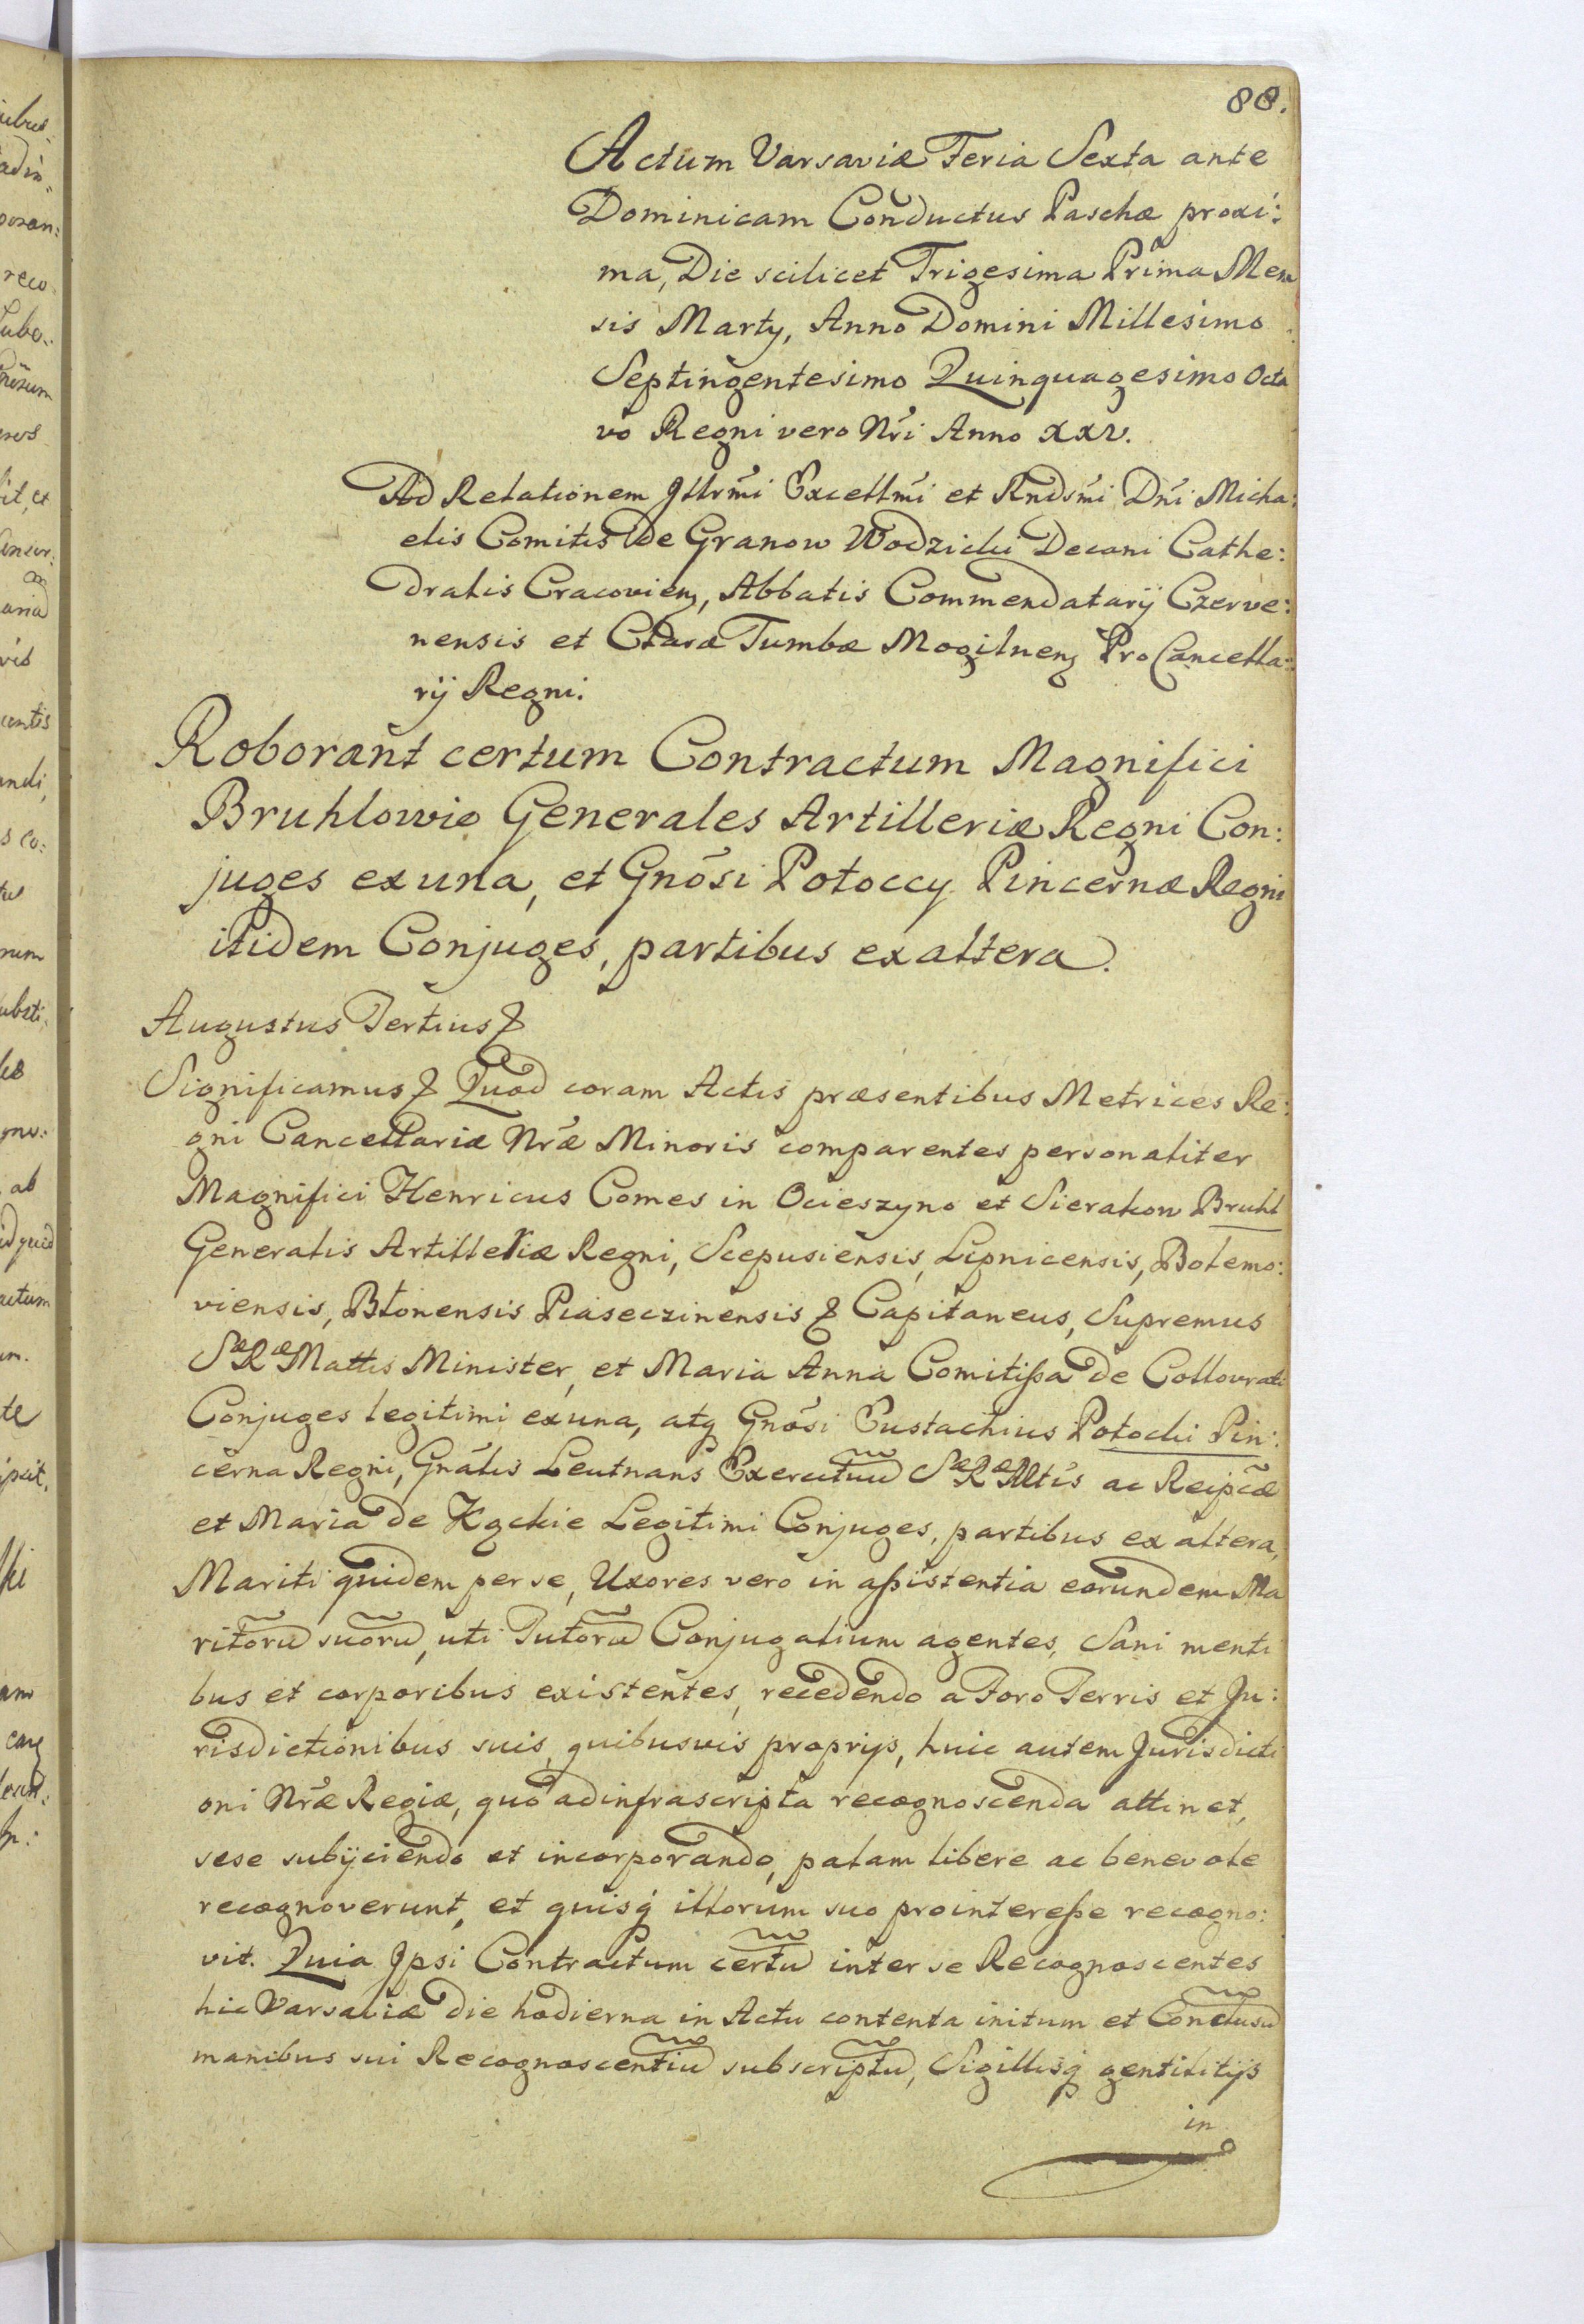 88.
Actum Varsaviæ Feria Sexta ante
Dominicam Conductus Paschæ proxi:
ma, Die scilicet Trigesima Prima Men
sis Martij, Anno Domini Millesimo
Septingentesimo Quinquagesimo Octa
vo Regni vero Nr̃i Anno XXV.
Ad Relationem Jllrm̃i Excellm̃i et Rndsm̃i Dñi Micha:
elis Comitis de Granow Wodzicki Decani Cathe:
dralis Cracovienʒ, Abbatis Commendatarij Czerve:
nensis et Claræ Tumbæ Mogilnenʒ ProCancella:
rij Regni.
Roborant certum Contractum Magnifici
Bruhlowie Generales Artilleriæ Regni Con:
juges ex una, et Gnõsi Potoccy Pincernæ Regni
itidem Conjuges, partibus ex altera.
Augustus Tertius &
Significamus & Quod coram Actis præsentibus Metrices Re:
gni Cancellariæ Nr̃æ Minoris comparentes personaliter
Magnifici Henricus Comes in Ocieszyno et Sierakow Bruhl
Generalis Artilleriæ Regni, Scepusiensis, Lipnicensis, Bolemo:
viensis, Błonensis Piaseczinensis & Capitaneus, Supremus
SæRæMattis Minister, et Maria Anna Comitißa de Collovrati
Conjuges legitimi ex una, atq Gnõsi Eustachius Potocki Pin:
cerna Regni, Gnãlis Leutnans Exercituũ SæRæMltis ac Reipcæ
et Maria de Kąckie Legitimi Conjuges, partibus ex altera,
Mariti quidem per se, Uxores vero in aßistentia eorundem Ma
ritorũ suorũ, uti Tutorũ Conjugalium agentes, Sani menti
bus et corporibus existentes, recedendo a Foro Terris et Ju:
risdictionibus suis, quibusvis proprijs, huic autem Jurisdicti
oni Nr̃æ Regiæ, quo ad infrascripta recognoscenda attinet,
sese subijciendo et incorporando, palam libere ac benevole
recognoverunt, et quisq̃ illorum suo pro intereße recogno:
vit. Quia Jpsi Contractum certũ inter se Recognoscentes
hic Varsaviæ die hodierna in Actu contenta initum et Conclusũ
manibus sui Recognoscentiũ subscriptũ, Sigillisq̃ gentilitijs
in